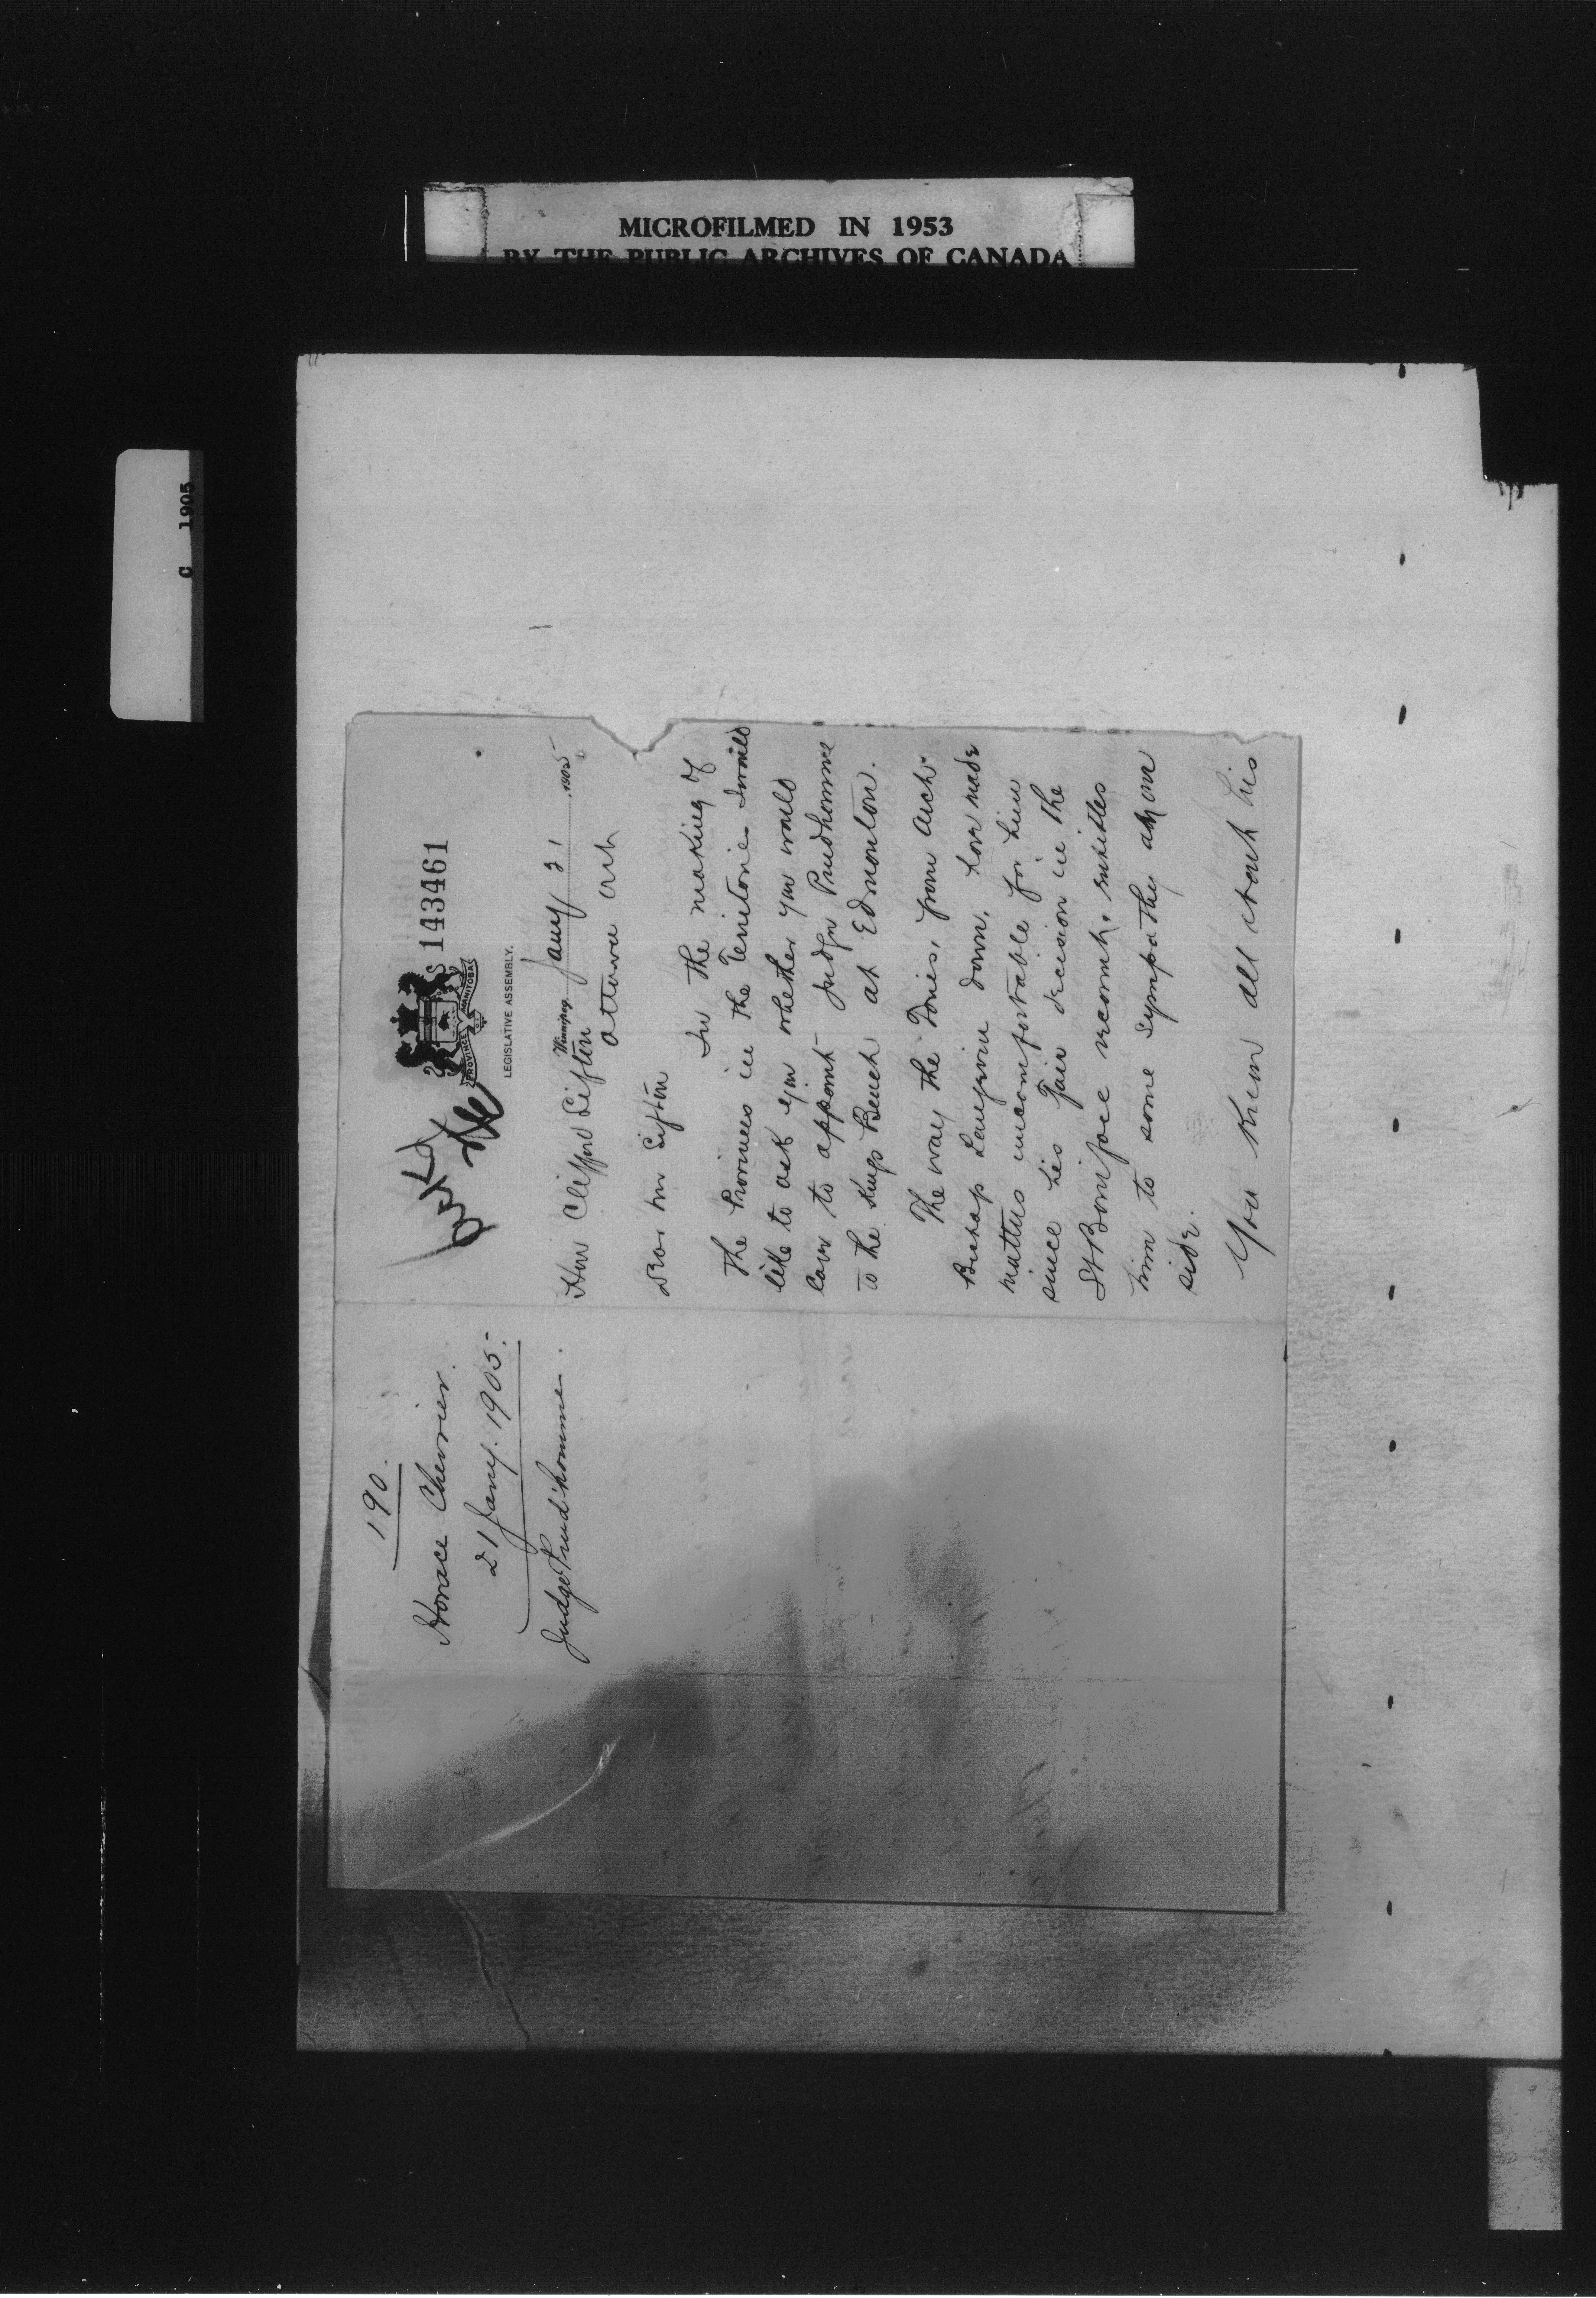 MICROFILMED IN 1953
BY THE PUBLIC ARCHIVES OF CANADA
C 1905
190.
Horace Chevrier.
21 Jany. 1905.
Judge Prud'homme.
143461
PROVINCE MANITOBA
LEGISLATIVE ASSEMBLY.
Winnipeg Jany 21 1905
Hon Clifford Sifton
Ottawa Ont
Dear Mr Sifton
In the making of
the Provinces in the Territories I would
like to ask you whether you would
care to appoint Judge Prudhomme
to the Kings Bench at Edmonton.
The way the Tories, from Arch
Bishop Langevin down, have made
matters uncomfortable for him
since his fair decision in the
St Boniface recount, entitles
him to some sympathy at our
side.
You know all about his